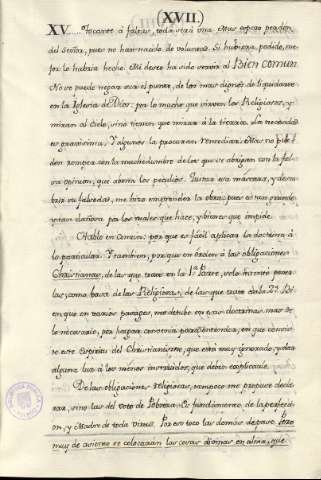 (XVII.)
XV..... Tocante à faltas, toda será una. Mas espero perdon
del Señor, pues no han nacido de voluntad. Si hubiera podido, me-
jor lo habria hecho. Mi deseo ha sido servir al Bien comun.
No se puede negar será el punto, de los mas dignos de liquidarse
en la Iglesia de Dios: por lo mucho que viven los Religiosos, y
miran al Cielo, sino tienen que mirar à la tierra. La necesidad
es gravissima. Y algunos la procuran remediar. Mas no pue-
den romper con la muchedumbre de los que se abrigan con la fal-
sa opinion, que abren los peculios. Quitar esa máscara, y descu-
brir su falsedad, me hizo emprender la obra; pues es tan
dañosa por los males que hace, y bienes que impide.
Hablo en comun; porque es fácil aplicar la doctrina à
lo particular. Y tambien, porque en órden à las obligaciones
Christianas, de las que trate en la 1ª. Parte, solo intento poner-
las, como basa de las Religiosas, de las que trato en la 2ª. Bi-
en, que en varios parages, me detube en esas doctrinas, mas de
lo necesario, por juzgar convenia para
este Espiritu del Christianismo, que está muy ignorado, y dar
alguna luz à los menos instruidos, que deben explicarle.
De las obligaciones religiosas, tampoco me propuse decla-
rar, sino las del voto de Pobreza. Es fundamento de la perfec-
cion, y Madre de toda virtud. Por eso toco las demas de paso. Pero
muy de asiento se colocarán las cosas divinas en alma, que